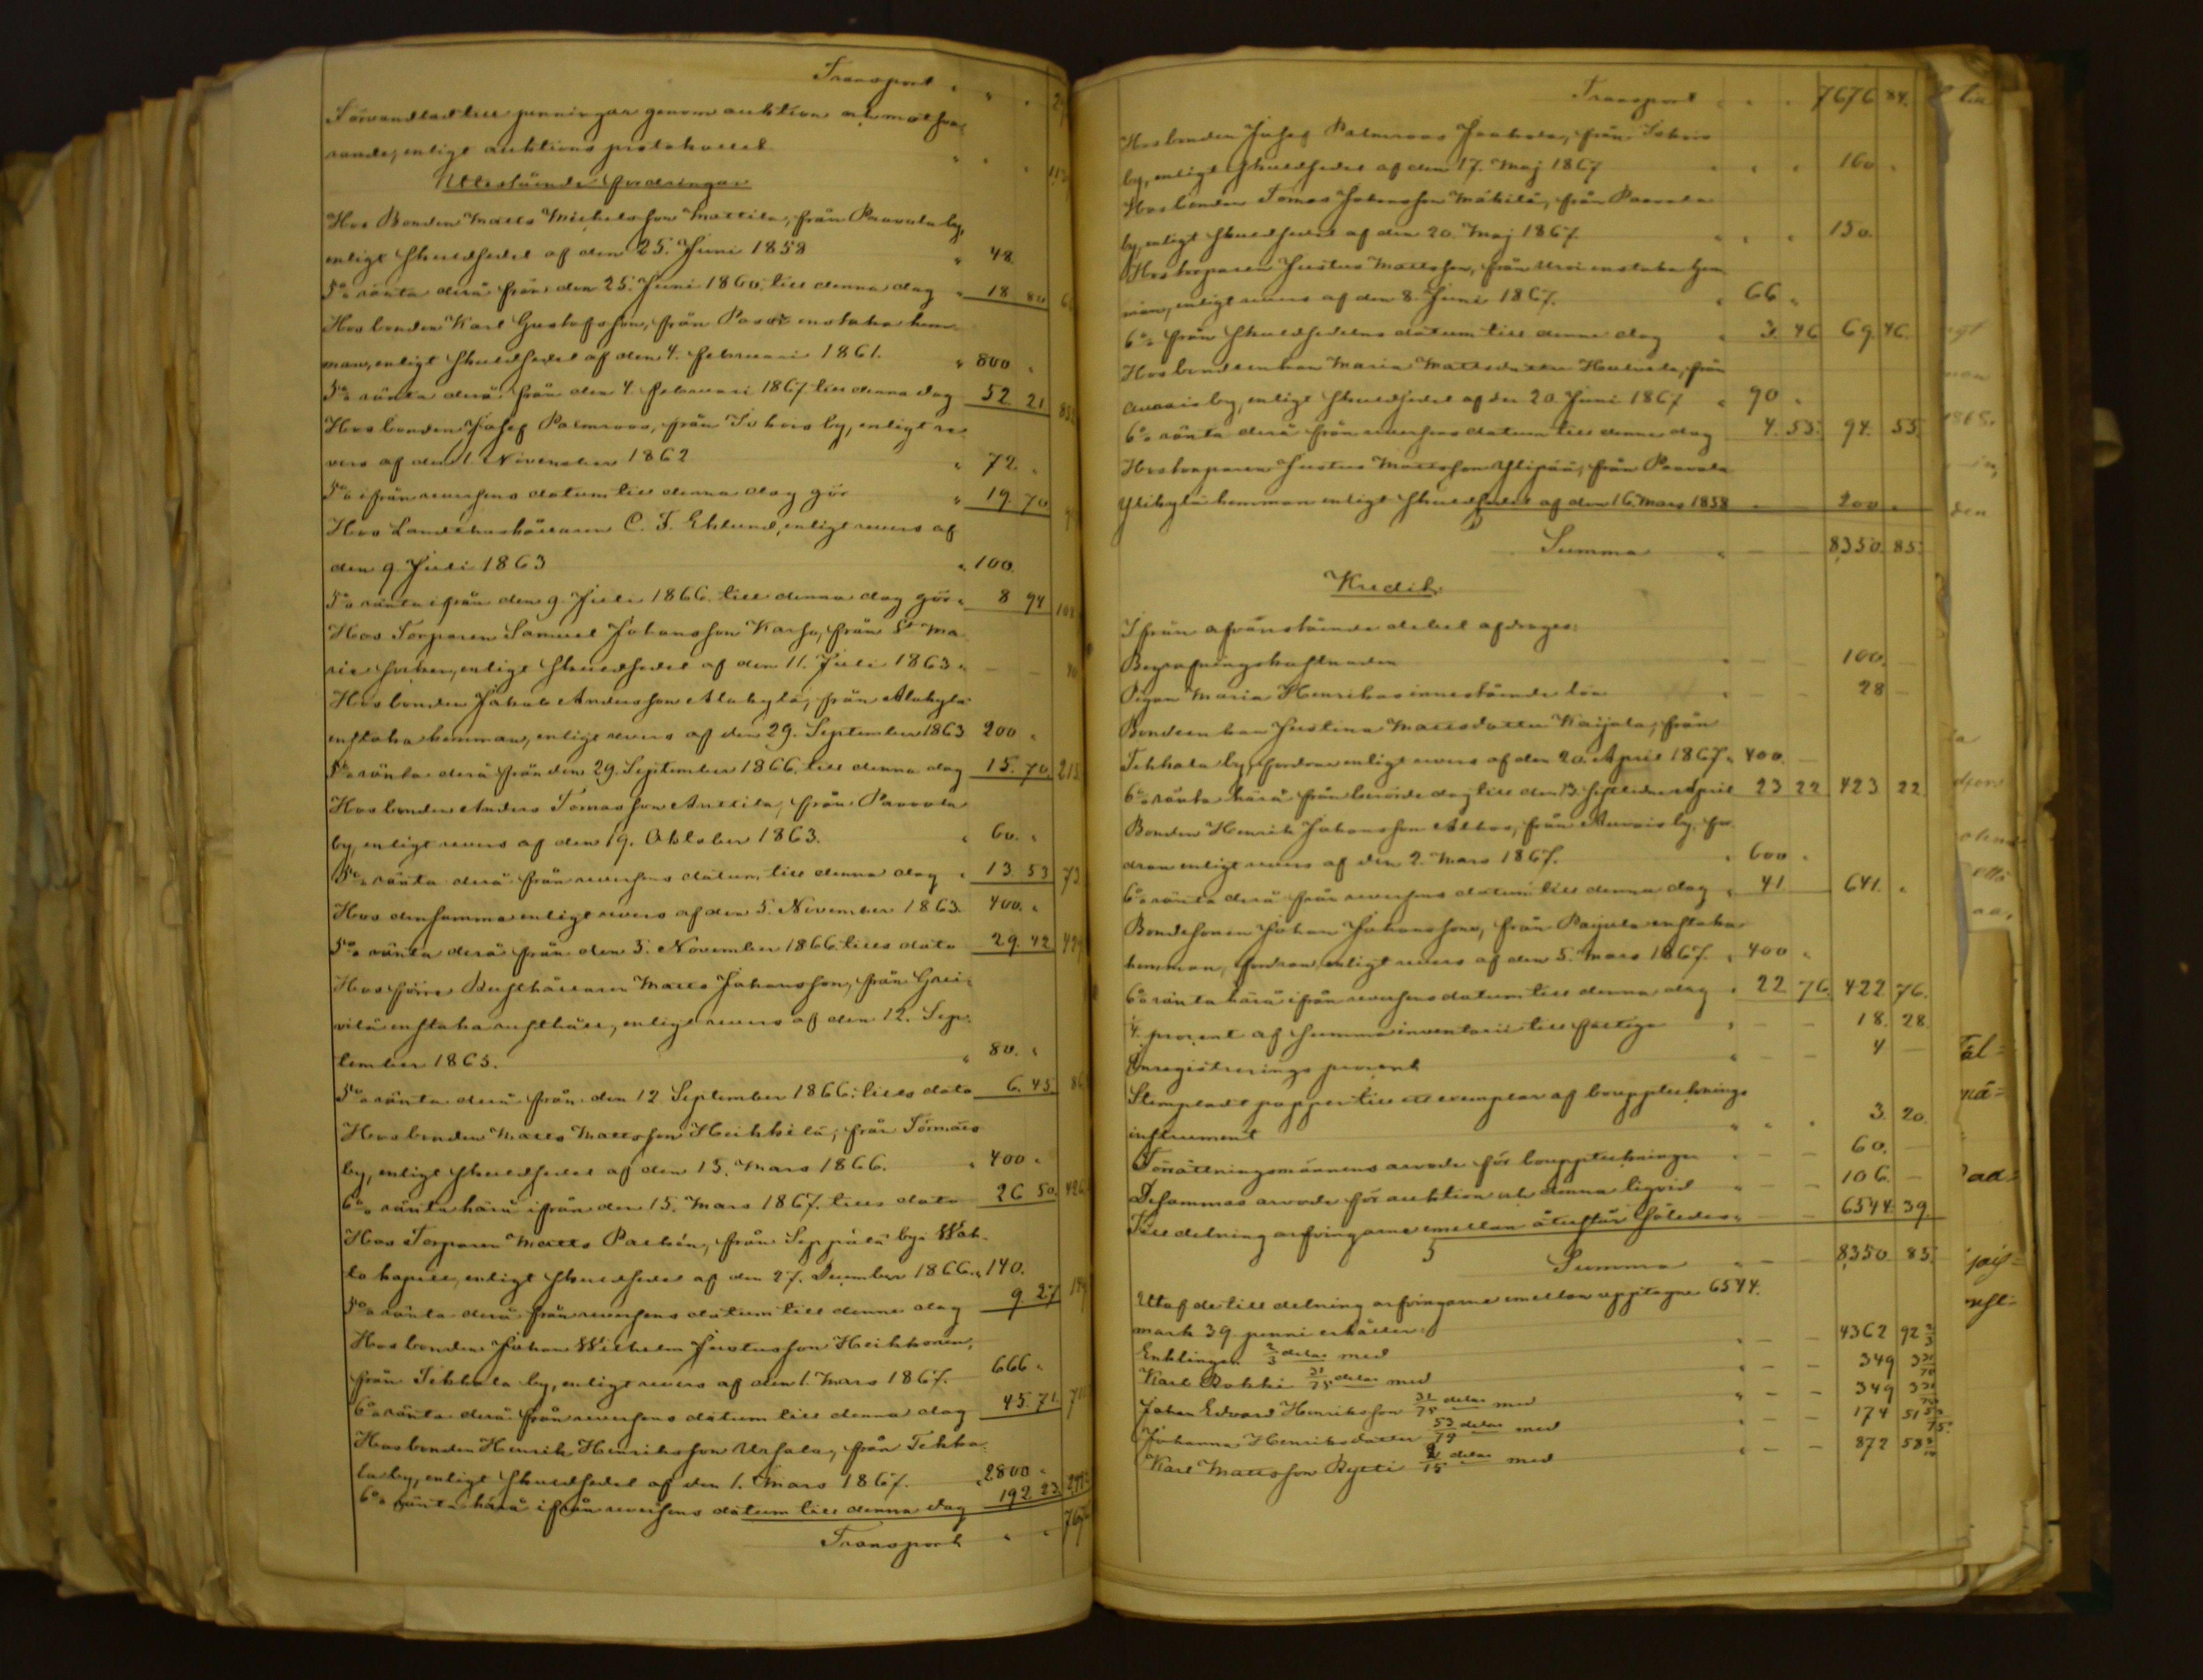 Transport " " " 2
Förvandlad till penningar genom auktion och motsva-
rande, enligt auktions protokollet " " " 113
Utestående fordringar
Hos Bonden Matts Michelsson Mattila, från Paavola by,
enligt skuldsedel af den 25. Juni 1858 " 48.
5% ränta derå från den 25. Juni 1860. till denna dag " 18 80
Hos bonden Karl Gustafsson, från Passi enstaka hem-
man, enligt skuldsedel af den 4. februari 1861. " 800 "
5% ränta derå från den 4. februari 1867. till denna dag 52. 21.
Hos bonden Josef Palmroos, från by, enligt re-
vers af den 1. November 1862 " 72. "
5% ifrån reversens datum till denna dag gör " 19. 70
Hos Landtbushållaren C. F. Eklund, enligt revers af
den 9. Juli 1863 " 100.
5% ränta ifrån den 9. Juli 1866. till denna dag gör " 8 94 108
Hos Torparen Samuel Johansson Karho, från St Ma-
rie socken, enligt skuldsedel af den 11. Juli 1863 " — —
Hos bonden Jakob Andersson Alakylä, från Alakylä
enstaka hemman, enligt revers af den 29. September 1863 200 "
5% ränta derå från den 29. September 1866. till denna dag 15. 70. 215
Hos bonden Anders Tomasson Anttila, från Paavola
by, enligt revers af den 19. Oktober 1863. " 60. "
5% ränta derå från reversens datum till denna dag " 13. 53 73
Hos densamma enligt revers af den 5. November 1863. 400. "
5% ränta derå från den 5. November 1866. till dato 29. 42 429
Hos förra Rusthållaren Matts Johansson, från
enstaka rusthåll, enligt revers af den 12. Sep-
tember 1865. " 80. "
5% ränta derå från den 12. September 1866. till dato 6. 45. 86
Hos bonden Matts Mattsson Heikkilä, från
by, enligt skuldsedel af den 15. Mars 1866. " 400 "
6% ränta härå ifrån den 15. Mars 1867. till dato 26 50. 426
Hos Torparen Matts från Seppälä by i
kapell, enligt skuldsedel af den 27. December 1866. " 140.
5% ränta derå från reversens datum till denna dag 9. 27 149
Hos bonden Johan Wilhelm Justusson Heikkonen,
från Tekkala by, enligt revers af den 1. Mars 1867. 666 "
6% ränta derå från reversens datum till denna dag 45. 71. 711
Hos bonden Henrik Henriksson Ursala, från Tekka-
la by, enligt skuldsedel af den 1. Mars 1867. " 2800 "
6% ränta härå ifrån reversens datum till denna dag 192. 23. 2992
Transport " " 7676
Transport " " " 7676 84.
Hos bonden Josef Palmroos Jaakola, från
by, enligt skuldsedel af den 17. Maj 1867 " " " 160 "
Hos bonden Tomas Johansson Mäkilä, från Paavola
by, enligt skuldsedel af den 20. Maj 1867. " " " 150.
Hos torparen Justus Mattsson, från enstaka hem-
man, enligt revers af den 8. Juni 1867. " 66 "
6% från skuldsedelns datum till denna dag " 3. 46 69. 46.
Hos bondeenkan Maria Mattsdotter från
by, enligt skuldsedel af den 20. Juni 1867 " 90 "
6% ränta derå från reversens datum till denna dag 4. 55. 94. 55.
Hos torparen Justus Mattsson Ylipää, från Paavola
Ylikylä hemman enligt skuldsedel af den 16. Mars 1858 — 200 "
Summa " — — 8,350. 85.
Kredit.
Ifrån afvanstående debet afdrages:
Begrafningskostnaden " — — 100. —
Pigan Maria Henrikas innestående lön " — — 28 —
Bondeenkan Justina Mattsdotter Kaijala, från
Tekkala by, fordran enligt revers af den 20. April 1867 " 400. —
6% ränta härå från berörde dag till den 13. sistledne April 23 22 423 22
Bonden Henrik Johansson från by, for-
dran enligt revers af den 2. Mars 1867. " 600 "
6% ränta derå från reversens datum till denna dag " 41 — 641. "
Bondesonen Johan Johansson, från enstaka
hemman, fordran enligt revers af den 5. Mars 1867. " 400 "
6% ränta härå ifrån reversens datum till denna dag " 22 76. 422 76.
¼ procent af summa inventarii till fattige " — — 18. 28.
Inregistrerings procent " — — 4 —
Stempladt papper till exemplar af bouppteknings
instrument " " " 3. 20.
Förrättningsmännens arvode för bouppteckningen " — — 60. —
Desammas arvode för auktion och denna liqvid " — — 106. —
Till delning arfvingarne emellan återstår således " — — 6544. 39.
Summa " — — 8,350. 85.
Utaf de till delning arfvingarne emellan upptagne 6544.
mark 39 penni erhåller:
Enklingen 2/3 delar med " — — 4362 92 2/3
Karl 31/75 delar med " — — 349 3
Johan Edvard Henriksson 31/75 delar med " — — 349 3
Johanna Henriksdotter delar med " — — 174 51
Karl Mattsson Rytti delar med " — — 872 58